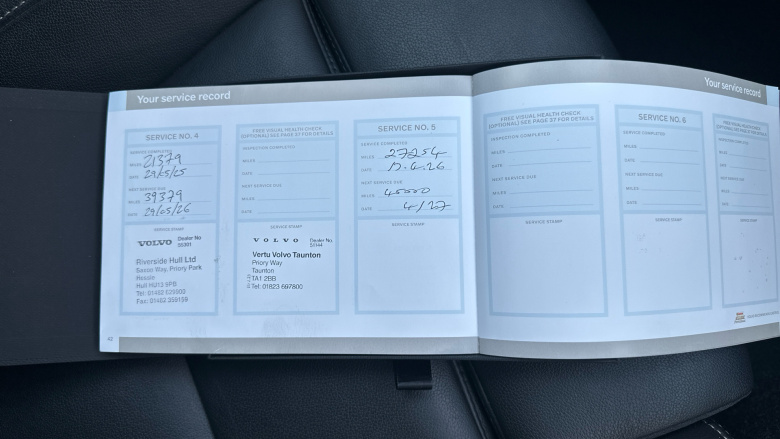 Your service record
SERVICE NO. 4
SERVICE COMPLETED
MILES 21379
DATE 29/05/25
NEXT SERVICE DUE
MILES 39379
DATE 29/05/26
SERVICE STAMP
VOLVO Dealer No
Riverside Hull Ltd
Priory Park
Hessle
Hull HU13 9PB
FREE VISUAL HEALTH CHECK
(OPTIONAL) SEE PAGE 37 FOR DETAILS
INSPECTION COMPLETED
MILES
DATE
NEXT SERVICE DUE
MILES
DATE
SERVICE STAMP
VOLVO Dealer No
Vertu Volvo Taunton
Priory Way
Taunton
TA1 2BB
Tel: 01823 697800
SERVICE NO. 5
SERVICE COMPLETED
MILES 27254
DATE 17.4.26
NEXT SERVICE DUE
MILES 45000
DATE 4/27
SERVICE STAMP
42
Your service record
FREE VISUAL HEALTH CHECK
(OPTIONAL) SEE PAGE 37 FOR DETAILS
INSPECTION COMPLETED
MILES
DATE
NEXT SERVICE DUE
MILES
DATE
SERVICE STAMP
SERVICE NO. 6
SERVICE COMPLETED
MILES
DATE
NEXT SERVICE DUE
MILES
DATE
SERVICE STAMP
FREE VISUAL HEALTH CHECK
(OPTIONAL) SEE PAGE 37 FOR DETAILS
INSPECTION COMPLETED
MILES
DATE
NEXT SERVICE DUE
MILES
DATE
SERVICE STAMP